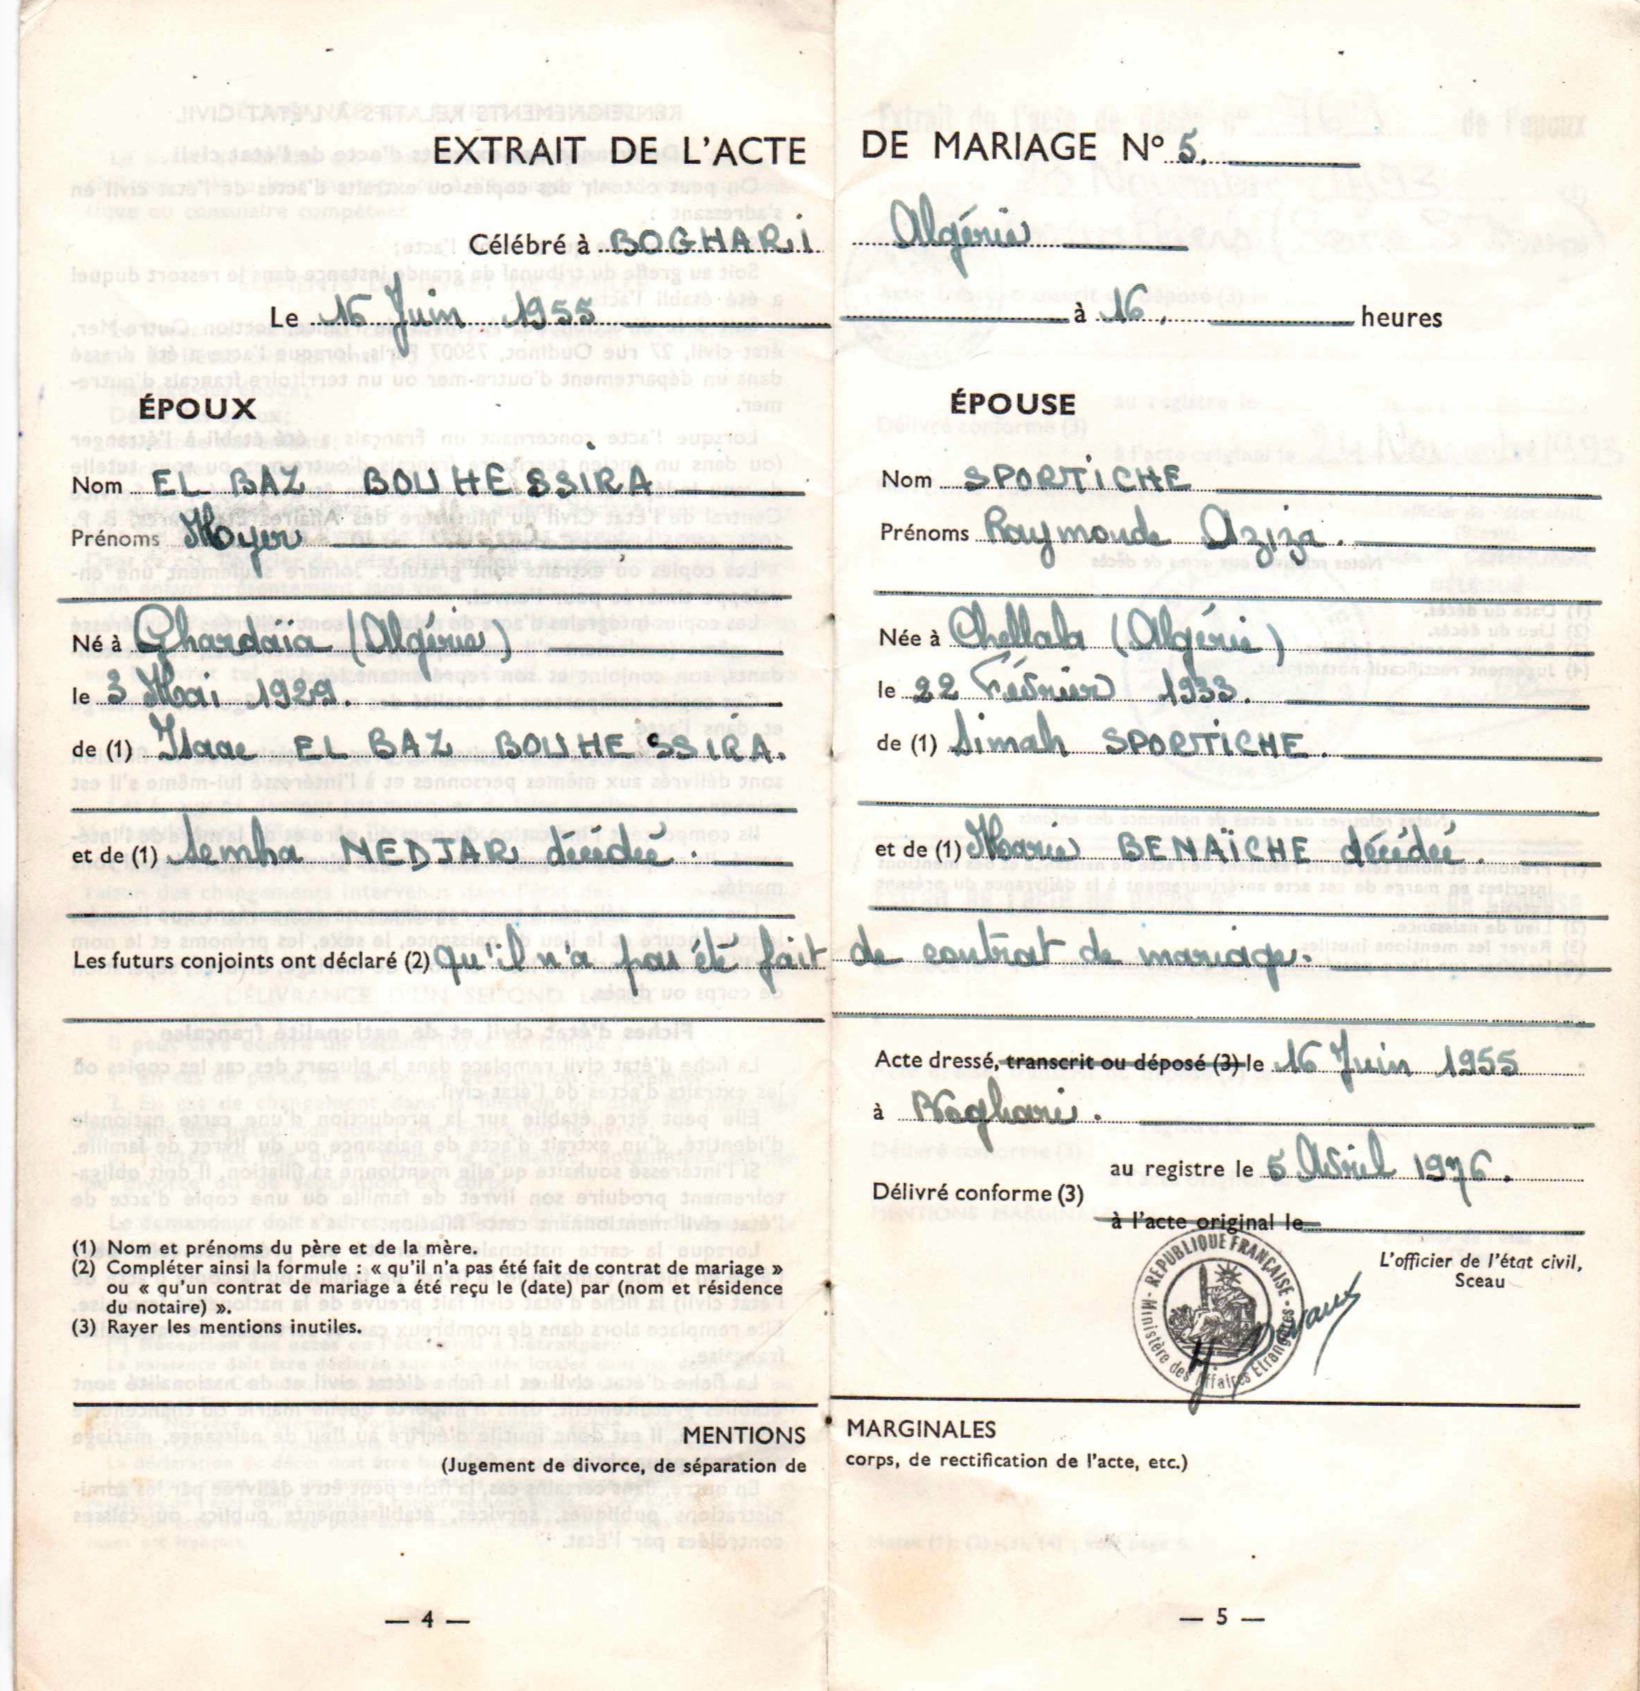 EXTRAIT DE L'ACTE DE MARIAGE N° 5.
Célébré à BOGHARI Algérie
Le 16 Juin 1955 à 16. heures
ÉPOUX
Nom EL BAZ BOUHESSIRA
Prénoms Meyer
Né à Ghardaïa (Algérie)
le 3 Mai 1929.
de (1) Isaac EL BAZ BOUHESSIRA.
et de (1) Semha NEDJAR décédée.
ÉPOUSE
Nom SPORTICHE
Prénoms Raymonde Aziza.
Née à Chellala (Algérie)
le 22 Février 1933.
de (1) Simah SPORTICHE.
et de (1) Marie BENAÏCHE décédée.
Les futurs conjoints ont déclaré (2) qu'il n'a pas été fait de contrat de mariage.
Acte dressé, transcrit ou déposé (3) le 16 Juin 1955
à Boghari.
au registre le 5 Avril 1976.
Délivré conforme (3)
à l'acte original le
L'officier de l'état civil,
Sceau
RÉPUBLIQUE FRANÇAISE
Ministère des Affaires Etrangères
(1) Nom et prénoms du père et de la mère.
(2) Compléter ainsi la formule : « qu'il n'a pas été fait de contrat de mariage »
ou « qu'un contrat de mariage a été reçu le (date) par (nom et résidence
du notaire) ».
(3) Rayer les mentions inutiles.
MENTIONS MARGINALES
(Jugement de divorce, de séparation de corps, de rectification de l'acte, etc.)
— 4 —
— 5 —